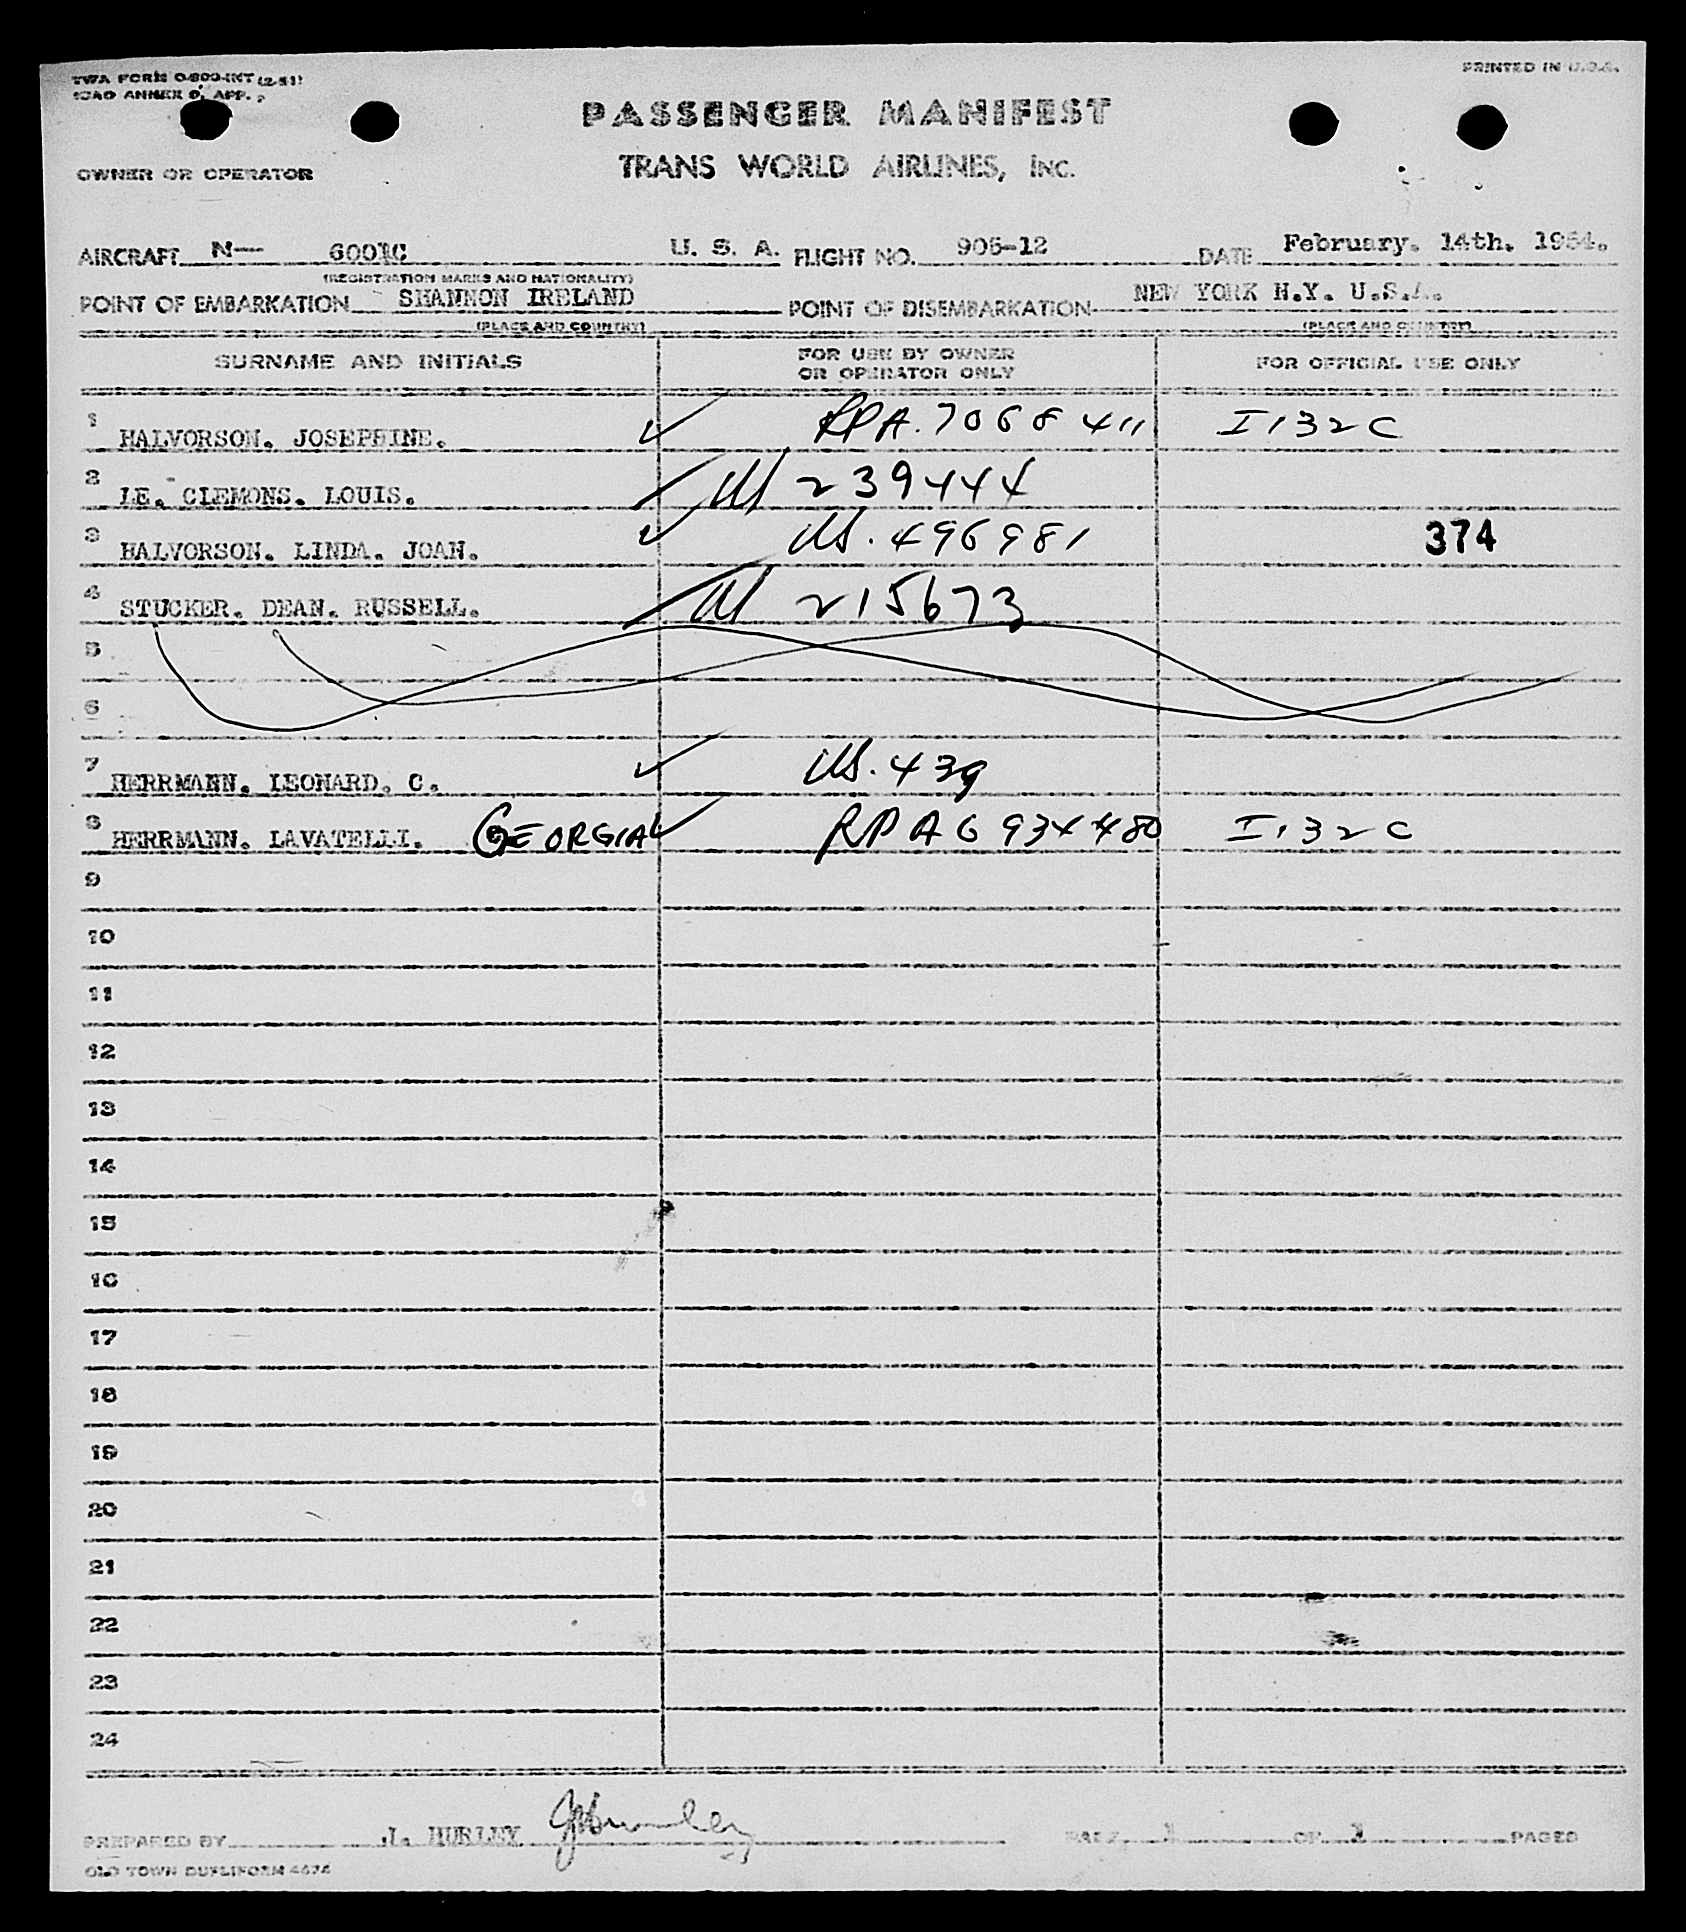 TWA FORM O-800-INT (2-51)
ICAO ANNEX 9, APP.
PRINTED IN U.S.A.
PASSENGER MANIFEST
OWNER OR OPERATOR TRANS WORLD AIRLINES, INC.
AIRCRAFT N— 6001C U. S. A. FLIGHT NO. 906-12 DATE February. 14th. 1954.
(REGISTRATION MARKS AND NATIONALITY)
POINT OF EMBARKATION SHANNON IRELAND POINT OF DISEMBARKATION NEW YORK N.Y. U.S.A.
(PLACE AND COUNTRY) (PLACE AND COUNTRY)
SURNAME AND INITIALS FOR USE BY OWNER OR OPERATOR ONLY FOR OFFICIAL USE ONLY
1 HALVORSON. JOSEPHINE. ✓ RPA. 7068411 I-132C
2 LE. CLEMONS. LOUIS. US 239444
3 HALVORSON. LINDA. JOAN. ✓ US. 496981 374
4 STUCKER. DEAN. RUSSELL. US 215673
5
6
7 HERRMANN. LEONARD. C. ✓ US. 439
8 HERRMANN. LAVATELLI. GEORGIA ✓ RPA 6934480 I-132C
9
10
11
12
13
14
15
16
17
18
19
20
21
22
23
24
PREPARED BY J. HURLEY JHurley PAGE 1 OF PAGES
OLD TOWN DUPLIFORM 4674